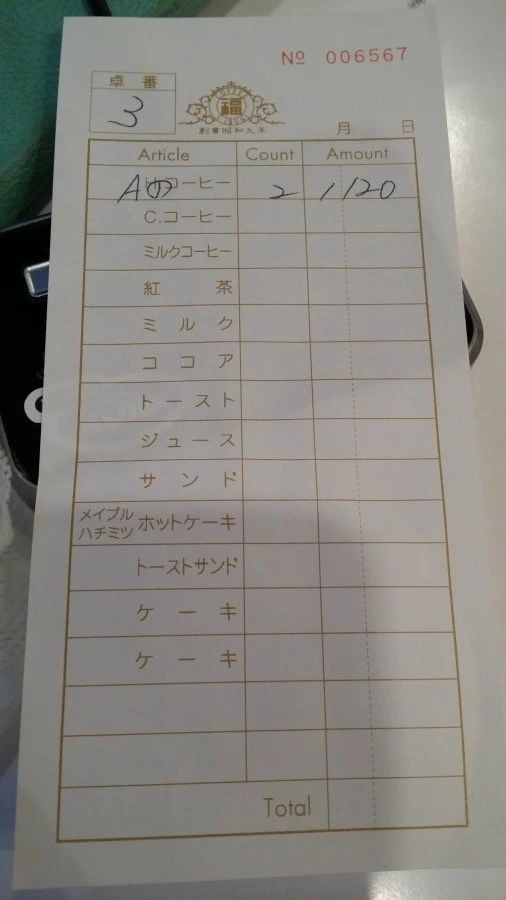 № 006567
卓番
3
福
創業昭和九年
月 日
Article Count Amount
A コーヒー 2 1120
C.コーヒー
ミルクコーヒー
紅茶
ミルク
ココア
トースト
ジュース
サンド
メイプル
ハチミツ ホットケーキ
トーストサンド
ケーキ
ケーキ
Total